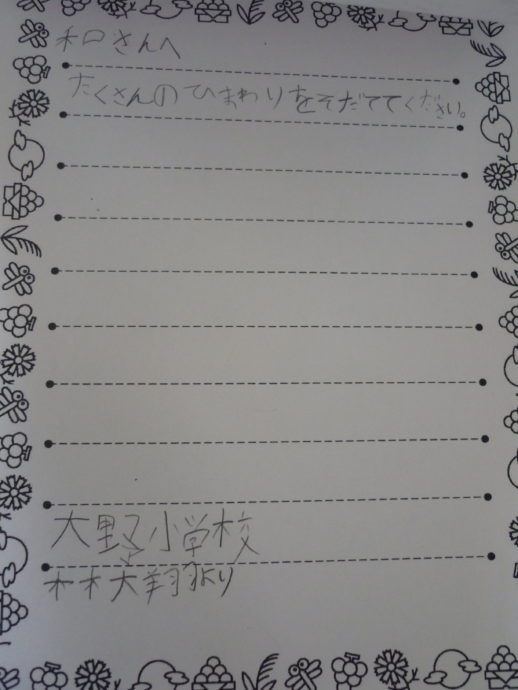 和口さんへ
たくさんのひまわりをそだててください。
大野小学校
林大翔より